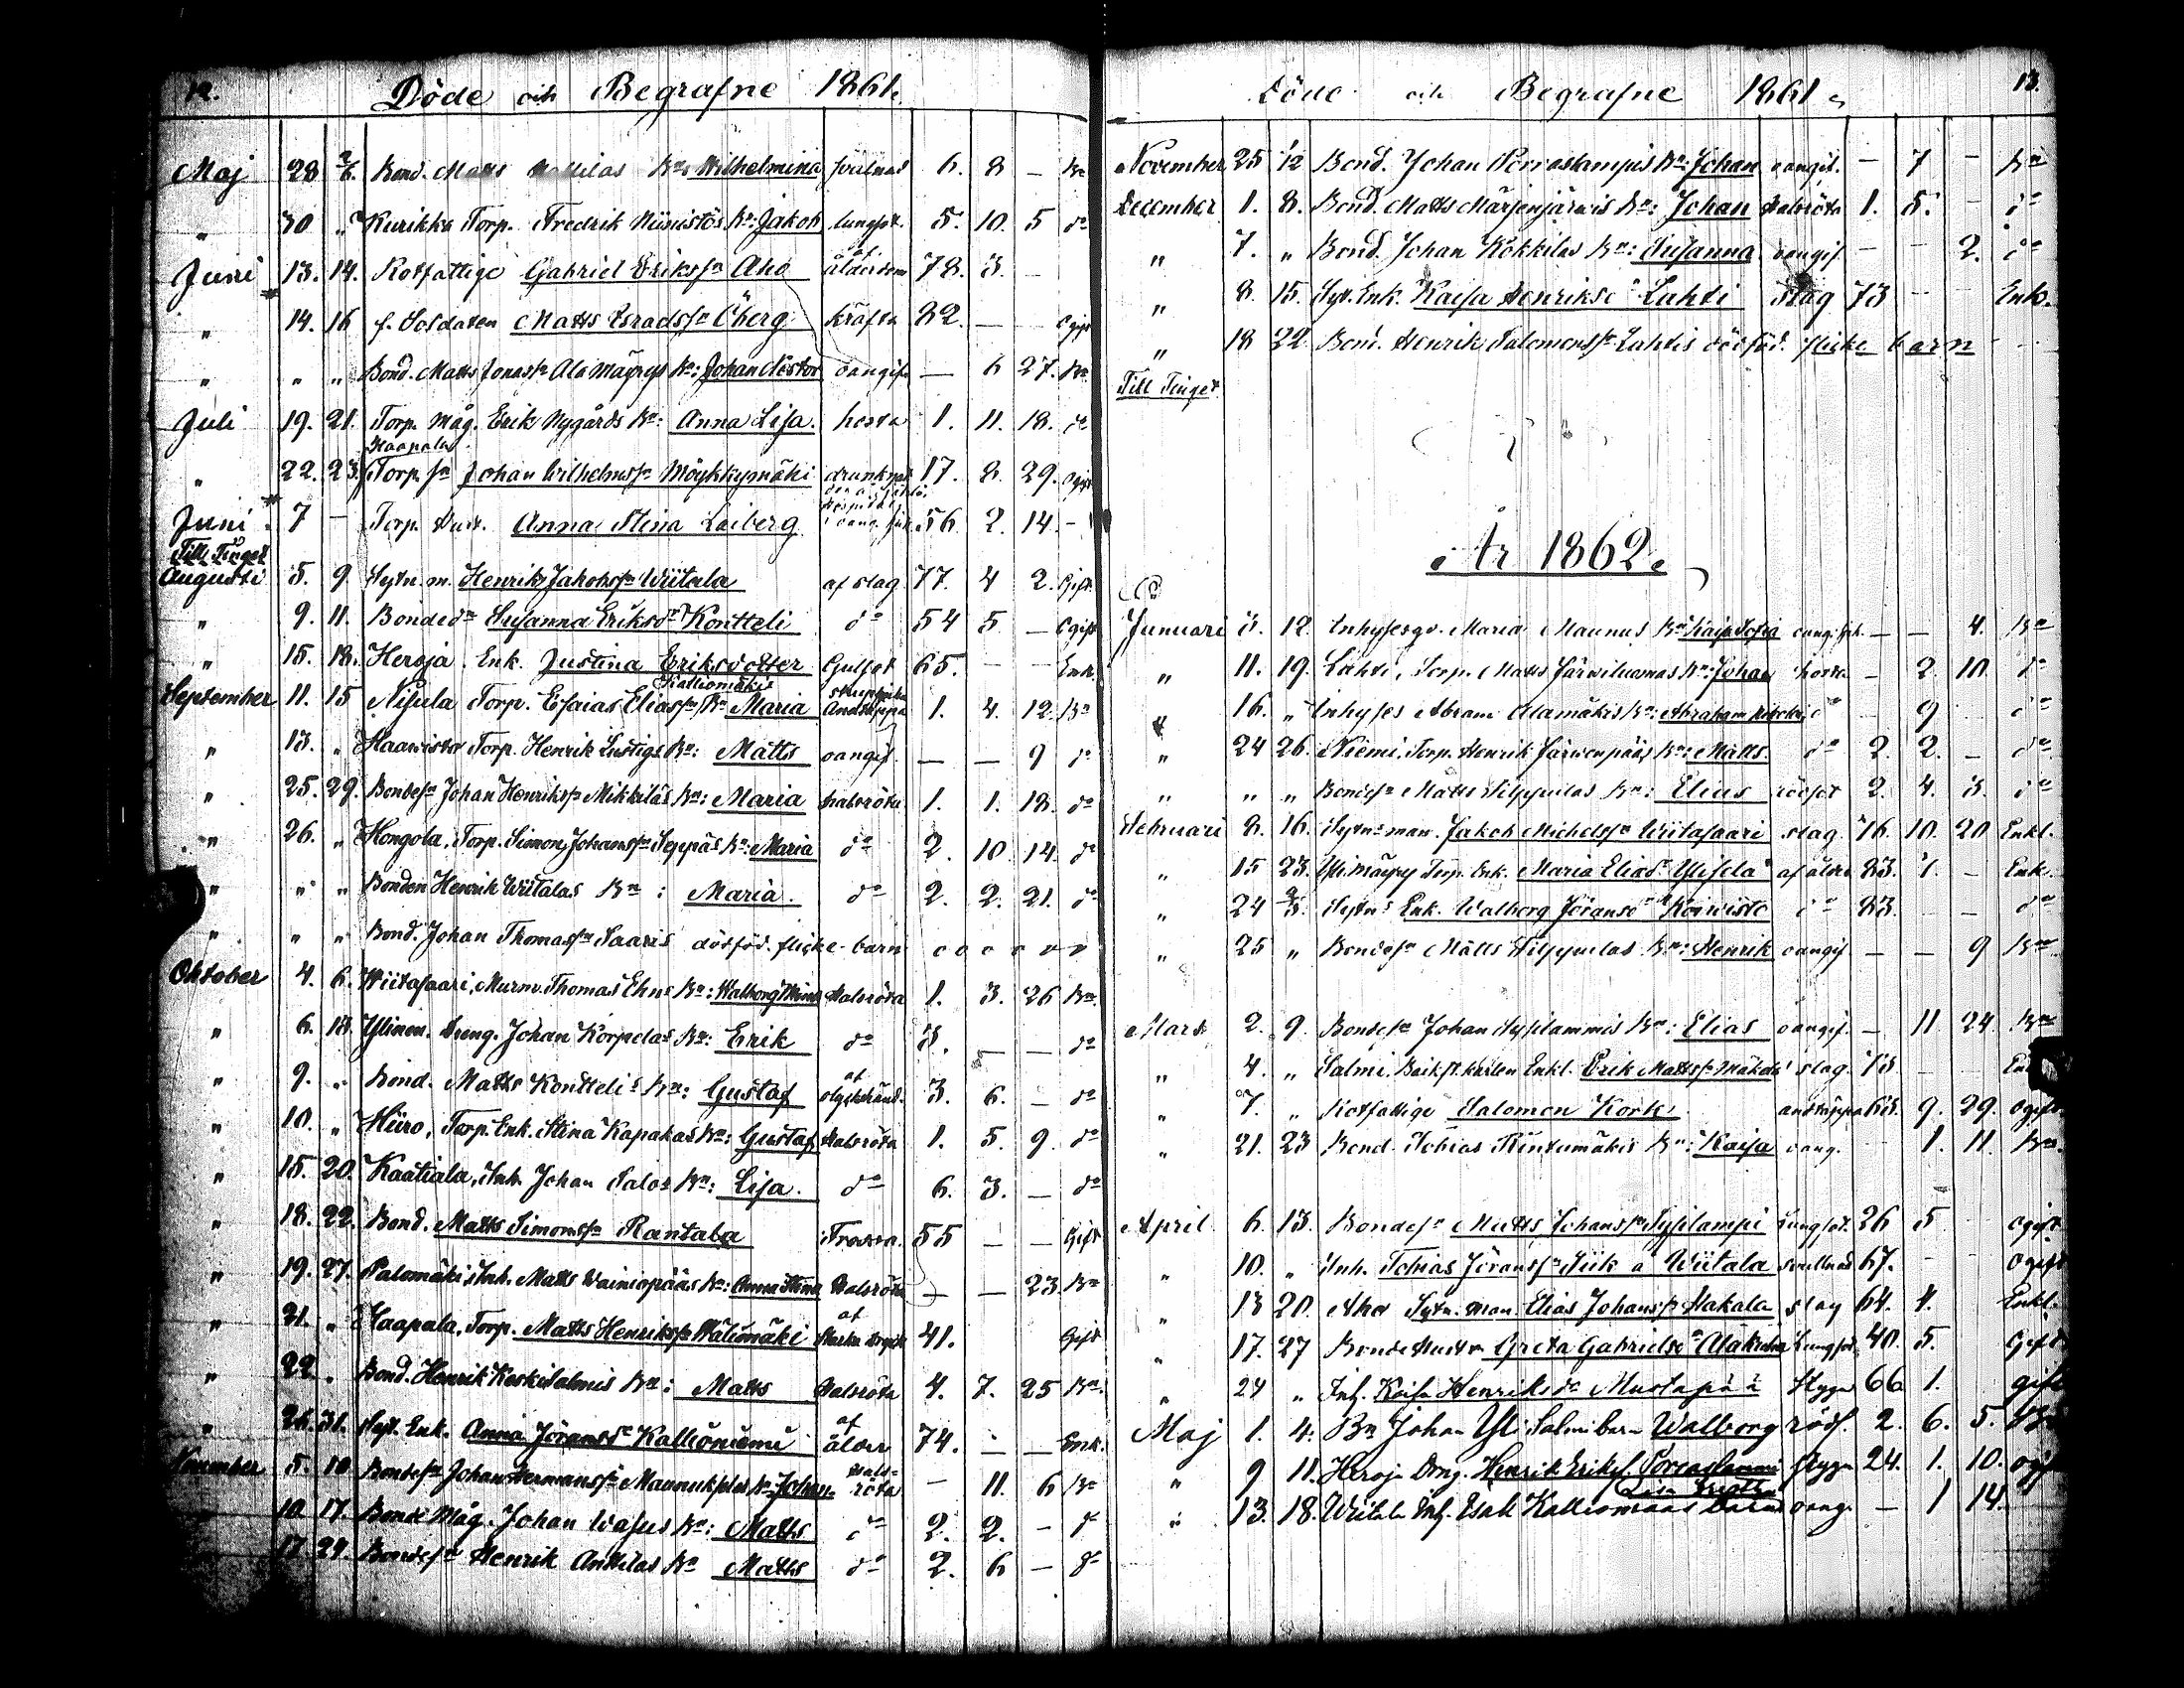 12.
Döde och Begrafne 1861.
Maj 28 2/6. Bond. Matts Mattilas Bn: Wilhelmina 6. 8 — Bn
" 30 " Kurikka Torp. Fredrik Niinistös Bn: Jakob lungsot. 5. 10. 5 do
Juni 13. 14. Rotfattige Gabriel Erikssn Aho af ålderdom 78. 3. —
" 14. 16 f. Soldaten Matts Öberg kräfta 82. — — Ogift
" " " Bond. Matts Jonassn Ala Mäyrys Bn: Johan Nestor oangif. — 6 27. Bn
Juli 19. 21. Torp. Måg. Erik Nygårds Bn: Anna Lisa. hosta 1. 11. 18. do
Haapala
" 22. 23. Torp. sn Johan Wilhelmssn Möykkymäki drunknat 17. 8. 29. Ogift
Juni 7 — Torp. Hust. Anna Stina Laiberg oang. sjuk. 56. 2. 14. —
Till Tinget
Augusti 5. 9. Sytn. m. Henrik Jakobssn Wiitala af slag 77. 4 2. Gift.
" 9. 11. Bonded. Susanna Eriksdr Kontteli do 54 5. — Ogift
" 15. 18. Heroja. Enk. Justina Eriksdotter Gulsot 65. — — Enk.
Kalliomäkis
September 11. 15 Nisula Torp. Esaias Eliassn Bn Maria Andtäppa 1. 4. 12. Bn
" 13. " Haawisto Torp. Henrik Lustigs Bn: Matts oangif. — — 9 do
" 25. 29. Bondesn Johan Henrikssn Mikkiläs Bn: Maria halsröta 1. 1. 18. do
" 26. " Hongola, Torp. Simon Johanssn Seppäs Bn: Maria do 2. 10. 14. do
" " " Bonden Henrik Wiitalas Bn: Maria. do 2. 2. 21. do
" " " Bond. Johan Thomassn Saaris dödföd. flicke-barn
Oktober 4. 6. Wiitasaari, Murm. Thomas Ehns Bn: Walborg Mina Halsröta 1. 3. 26 Bn.
" 6. 13. Ylinen. Dreng. Johan Korpelas Bn: Erik do 3. — — do
" 9. " Bond. Matts Konttelis Bn: Gustaf af olyckshänd. 3. 6. — do
" 10. " Hiiro, Torp. Enk. Stina Kapakas Bn: Gustaf Halsröta 1. 5. 9. do
" 15. 20. Kaatiala, Inh. Johan Salos Bn: Lisa. do 6. 3. — do
" 18. 22. Bond. Matts Simonssn Rantala Frossa. 55 — — Gift
" 19. 27. Palomäki, Inh. Matts Wainiopääs Bn: Anna Stina Halsröta — — 23. Bn
" 21. " Haapala, Torp. Matts Henrikssn Wälimäki af Starka dryck 41. Gift
" 22. " Bond. Henrik Keskisalmis Bn: Matts Halsröta 4. 7. 25 Bn.
" 26. 31. Syt. Enk. Anna Jöransdr Kallioniemi af ålder 74. — — Enk.
November 5. 10 Bondesn Johan Hermanssn Bn: Johan Hals-röta — 11. 6 Bn
10. 17. Bonde Måg. Johan Wasus Bn: Matts do 2. 2. — do
17. 24. Bondesn Henrik Anttilas Bn Matts do 2. 6 — do
13.
Döde och Begrafne 1861.
November 25 1/12 Bond. Johan Porraslampis Bn: Johan oangif. — 7 — Bn
December 1. 8. Bond. Matts Märjenjärwis Bn: Johan Halsröta 1. 5. — do
" 7. " Bond. Johan Kökkilas Bn: Susanna oangif. — — 2. do
" 8. 15. Syt. Enk. Kaisa Henriksdr Lahti slag 73 — — Enk.
" 18 22. Bond. Henrik Salomonssn Lahtis dödföd. flicke barn
Till Tinget
År 1862.
Januari 3. 12. Inhysesqv. Maria Maunus Bn Kaisa Sofia oang. sjuk. — — 4. Bn
" 11. 19. Lahti, Torp. Matts Järwiluomas Bn: Johan hosta — 2. 10. do
" 16. " Inhyses Abram Alamäkis Bn: Abraham do 9 do
" 24 26. Niemi, Torp. Henrik Järwenpääs Bn: Matts. do 2. 2. — do
" " " Bondesn Matts Hilppulas Bn: Elias rödsot 2. 4. 3. do
Februari 8. 16. Sytn:man. Jakob Michelssn Wiitasaari slag. 76. 10. 20 Enkl.
" 15 23. Yli Mäyry Torp. Enk. Maria Eliasdr af ålder 83. 1. — Enk.
" 24 2/3. Sytn: Enk. Walborg Jöransdr Koiwisto do 83. — — do
" 25 " Bondesn Matts Hilppulas Bn: Henrik oangif. — — 9 Bn
Mars 2. 9. Bondesn Johan Syslammis Bn: Elias oangif. — 11 24 Bn
" 4. " Salmi, Enkl. Erik Mattssn Mäkelä slag. 73
" 7. " Rotfattige Salomon Kork andtäppa 63. 9. 29. Ogift
" 21. 23 Bond. Tobias Rintamäkis Bn: Kaisa oang. 1. 11. Bn.
April 6. 13. Bondesn Matts Johanssn Syslampi Lungsot. 26 5 Ogift
" 10. " Inh. Tobias Jöranssn Siik a Wiitala svullnad 67. Ogift
" 13 20. Aho Sytn. man. Elias Johanssn Hakala slag 64. 4. Enkl.
" 17. 27 Bonde Hustr. Greta Gabrielsdr Lungsot 40. 5. Gift
" 24 " Inh. Kaisa Henriksdr Mustapää Stygn 66 1. gift
Maj 1. 4. Bn Johan Yli Salmi barn Walborg rödf. 2. 6. 5. Bn
" 9 11. Heroja Dreng. Henrik Eriks. Porraslammi stygn 24. 1. 10. ogift
" 13. 18. Wiitala Inh. Isak Kalliomäas barn oang. — 1 14.